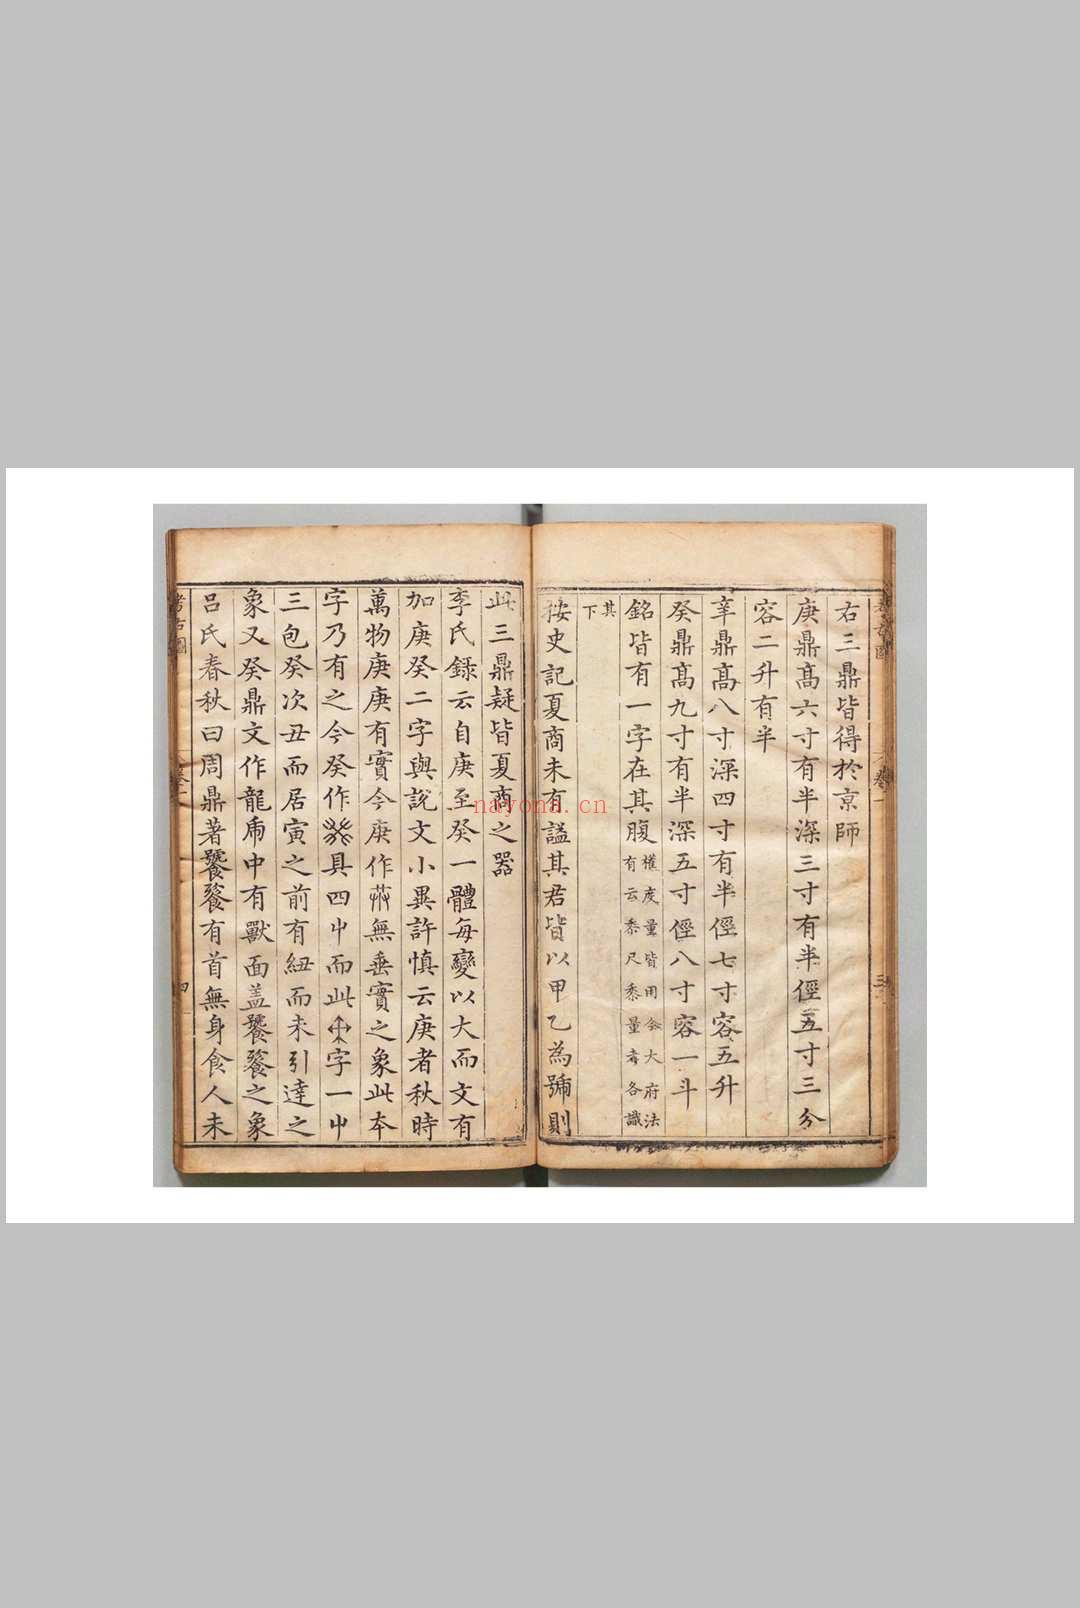 右三鼎皆得於京師
庚鼎髙六寸有半深三寸有半徑五寸三分
容二升有半
辛鼎髙八寸深四寸有半徑七寸容五升
癸鼎髙九寸有半深五寸徑八寸容一斗
銘皆有一字在其腹權度量皆用今大府法有云黍尺黍量者各識
其下
按史記夏商未有謚其君皆以甲乙為號則
此三鼎疑皆夏商之器
李氏録云自庚至癸一體每變以大而文有
加庚癸二字與説文小異許慎云庚者秋時
萬物庚庚有實今庚作無垂實之象此本
字乃有之今癸作具四屮而此字一屮
三包癸次丑而居寅之前有紐而未引達之
象又癸鼎文作龍虎中有獸面盖饕餮之象
吕氏春秋曰周鼎著饕餮有首無身食人未
考古圖 卷一 四
nayona.cn